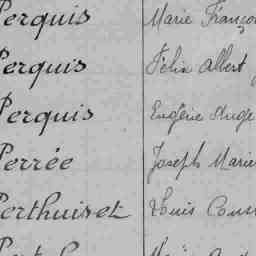 Perquis Marie Franço
Perquis Félix Albert
Perquis Eugène Ange
Perrée Joseph Marie
Perthuiset Louis